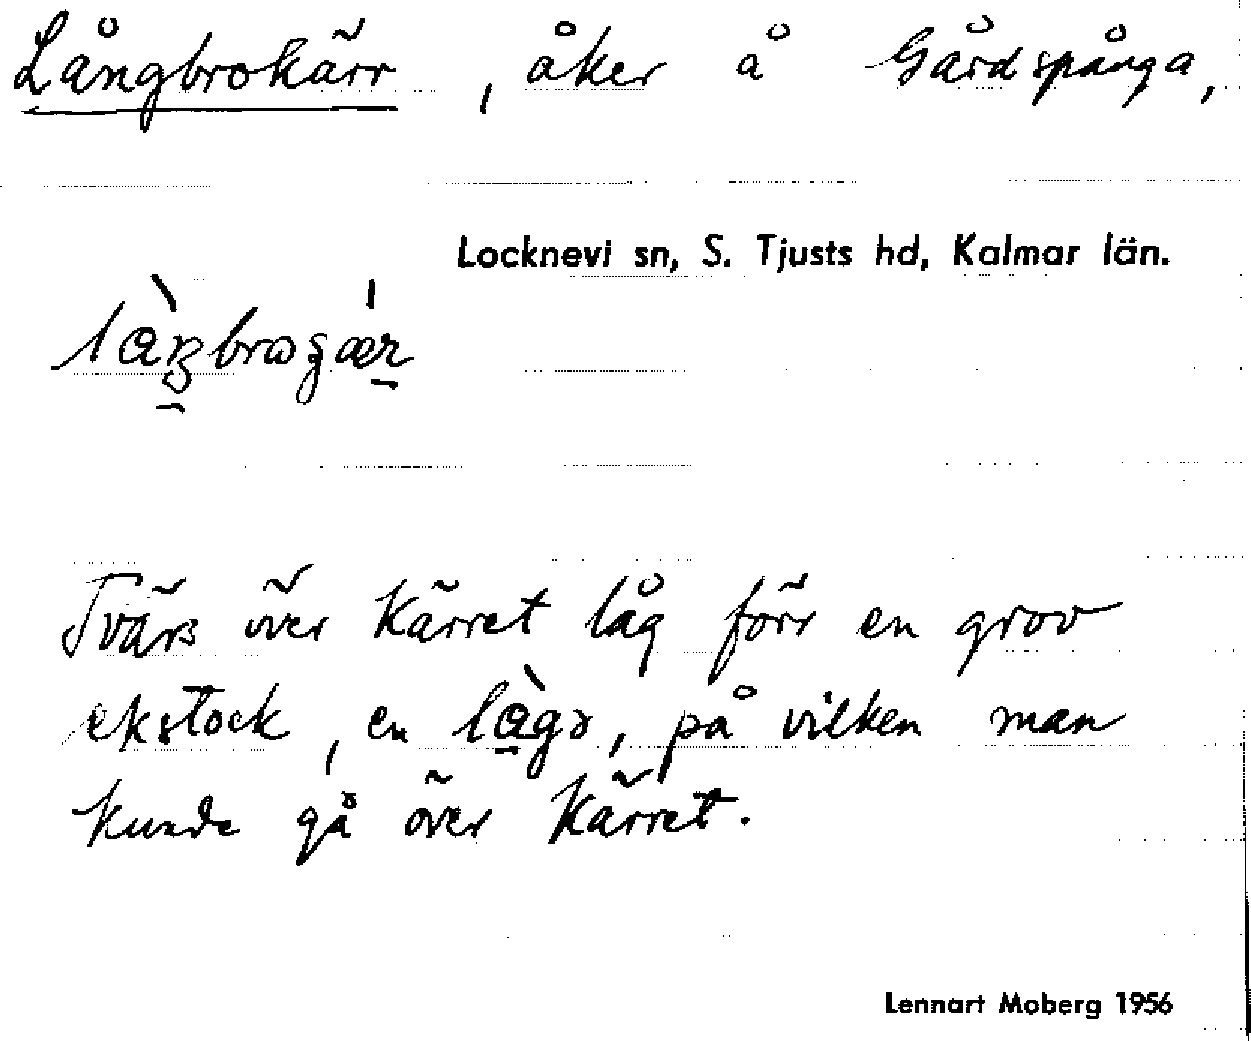 Långbrokärr, åker å Gårdspånga,
Locknevi sn, S. Tjusts hd, Kalmar län.
Tvärs över kärret låg förr en grov
ekstock, en lågo, på vilken man
kunde gå över kärret.
Lennart Moberg 1956